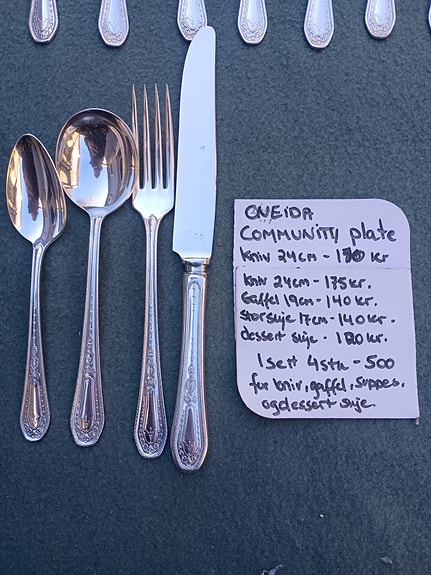 ONEIDA
COMMUNITY plate
kniv 24cm - 170 kr
kniv 24cm - 175 kr.
Gaffel 19cm - 140 kr.
stor skje 17cm - 140 kr.
dessert skje - 120 kr.
1 sett 4 stk - 500
for kniv, gaffel, suppes.
og dessert skje